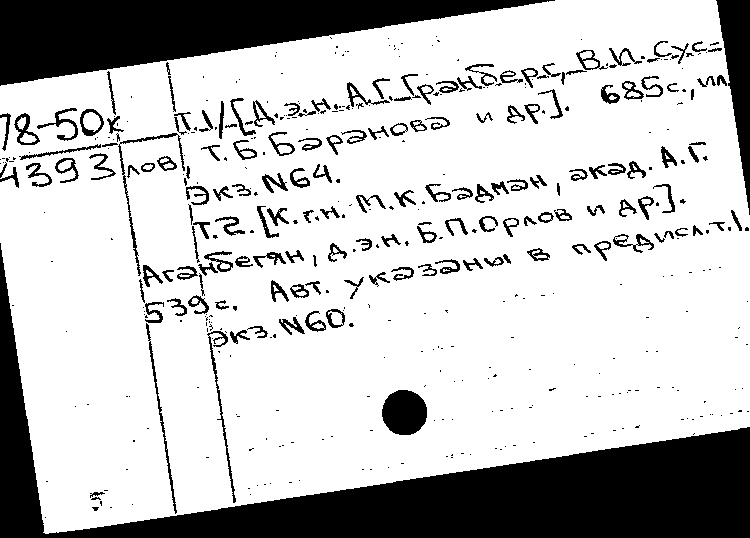 78-50к
4393
Т.1/[Д.э.н. А.Г. Гранберг, В.И. Сус=
лов, Т.Б. Баранова и др.]. 685с., ил
Экз. N64.
Т.2. [К.г.н. М.К. Бадман, акад. А.Г.
Аганбегян, д.э.н. Б.П. Орлов и др.].
539с. Авт. указаны в предисл. т.1.
Экз. N60.